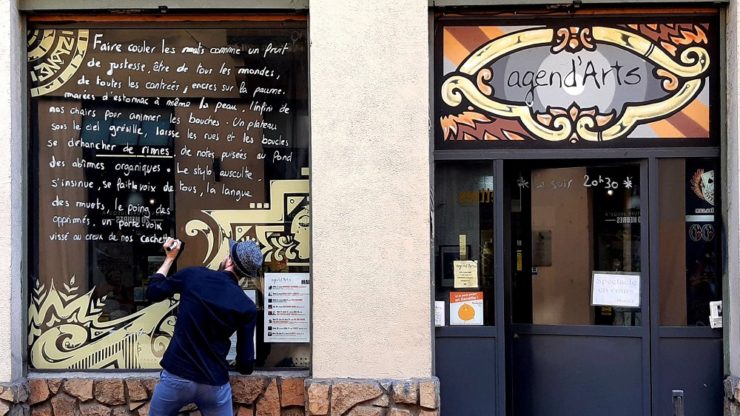 Faire couler les mots comme un fruit
de justesse, être de tous les mondes,
de toutes les contrées, encres sur la paume,
marées d'estomac à même la peau. L'infini de
nos chairs pour animer les bouches. Un plateau
sous le ciel grésille, laisse les rues et les boucles
se déhancher de rimes, de notes puisées au fond
des abîmes organiques. Le stylo ausculte,
s'insinue, se fait la voix de tous, la langue
des muets, le poing des
opprimés, un porte-voix
vissé au creux de nos cachett
agend'Arts
Ce soir 20h30 *
Spectacle
en cours
agend'Arts